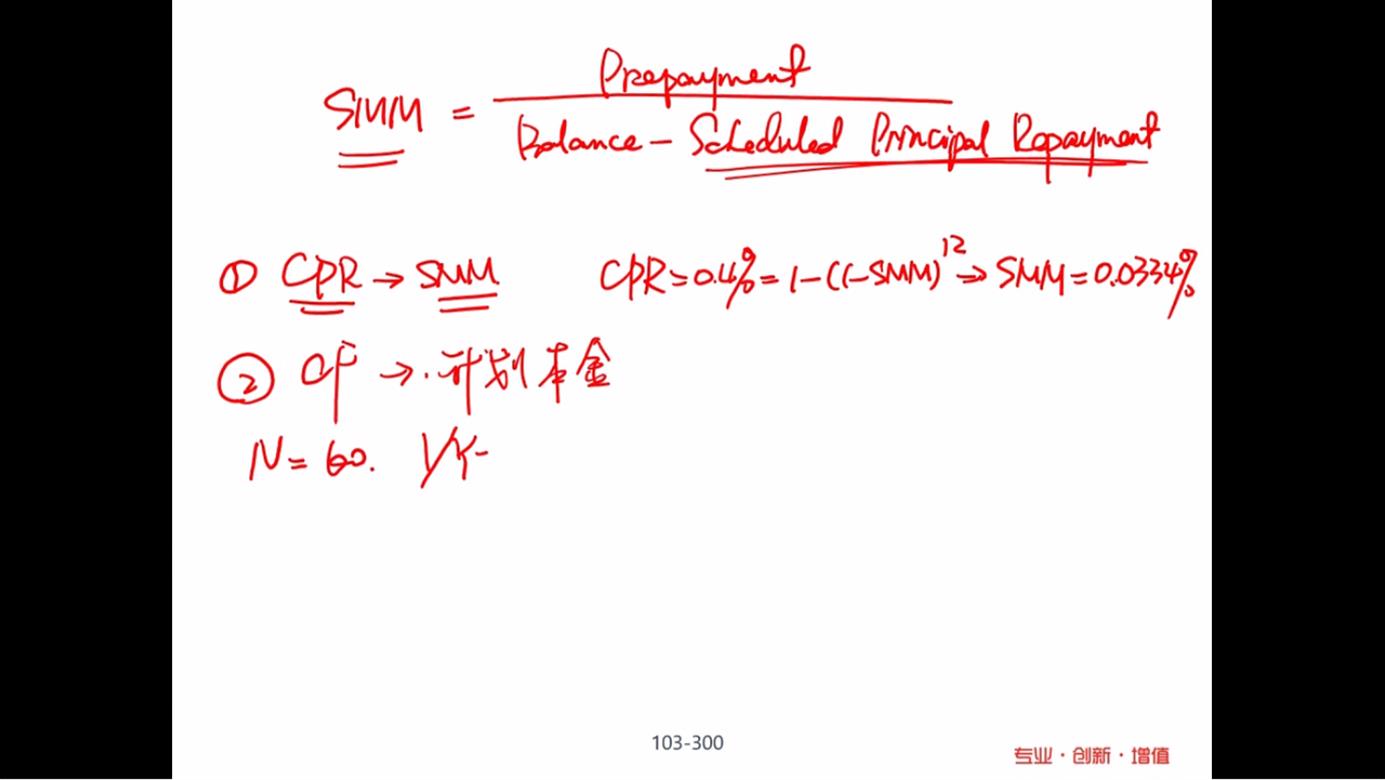 SMM = Prepayment / Balance - Scheduled Principal Repayment
① CPR → SMM CPR = 0.4% = 1-(1-SMM)^12 → SMM = 0.0334%
② CF → 计划本金
N = 60. I/Y-
103-300
专业·创新·增值